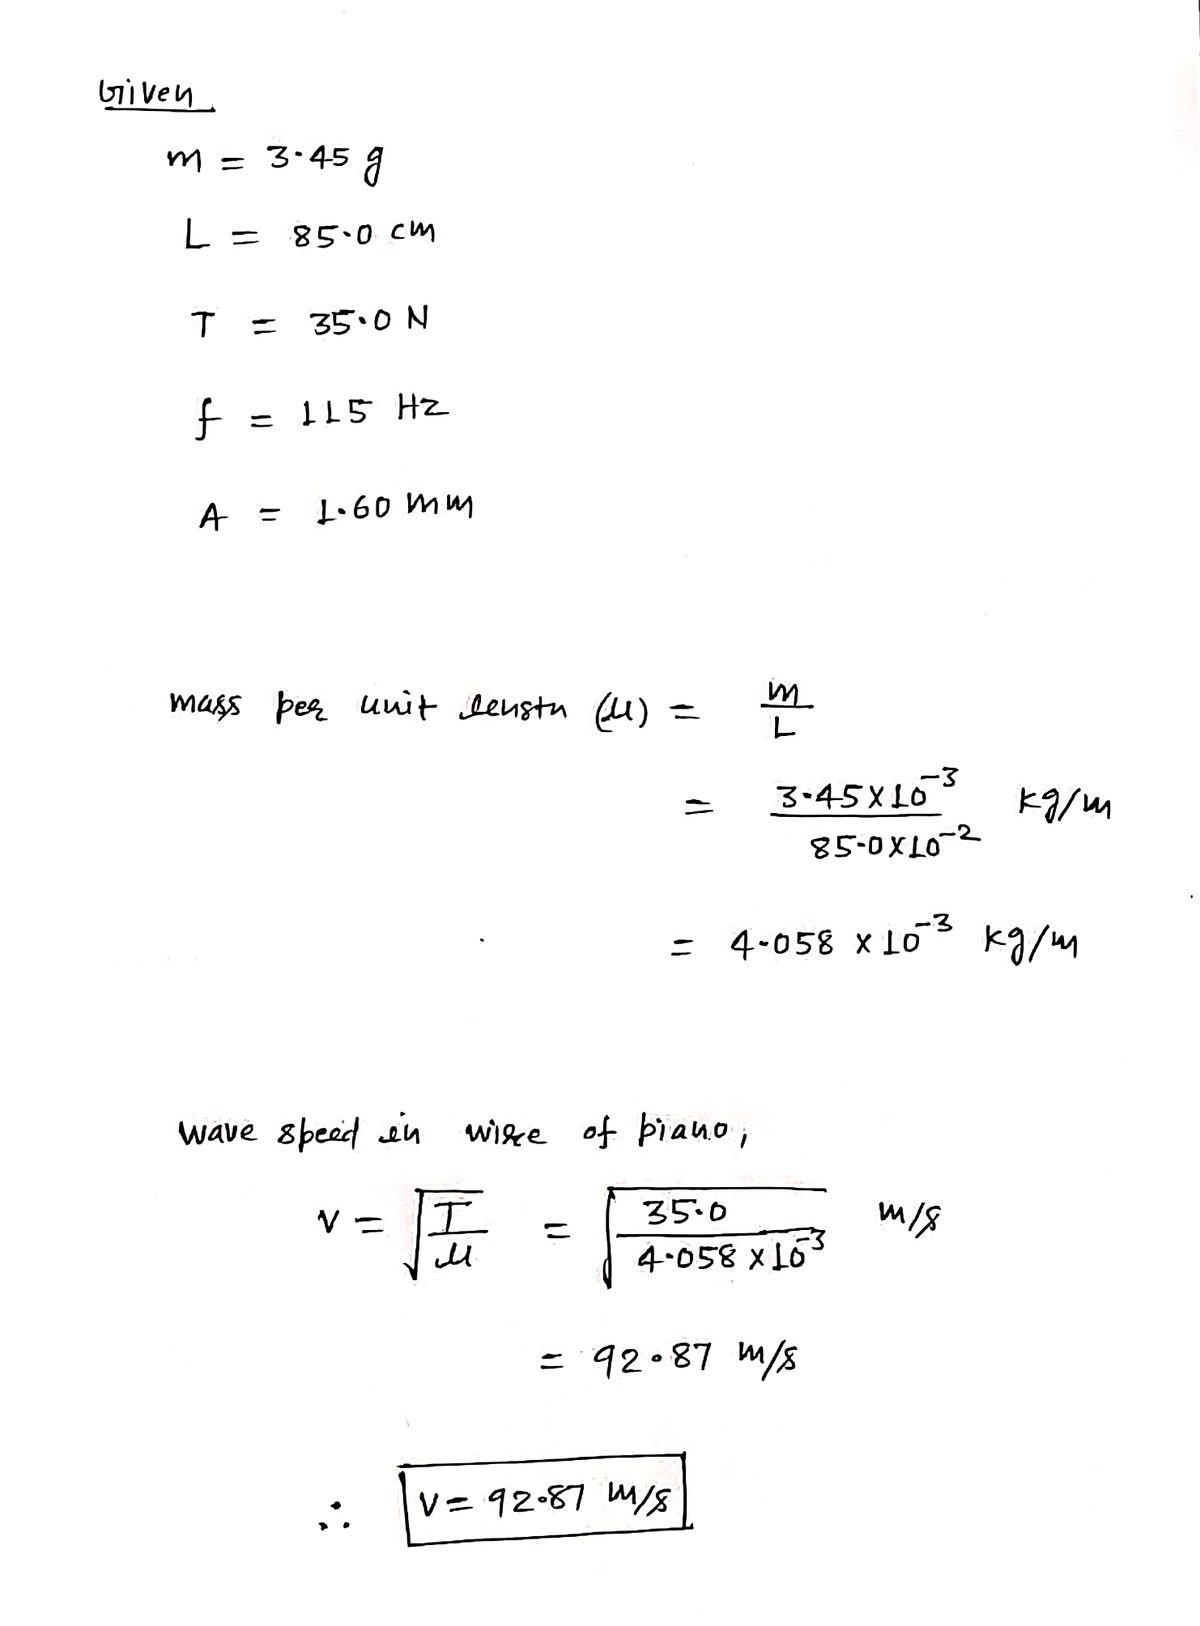 Given
m = 3.45 g
L = 85.0 cm
T = 35.0 N
f = 115 Hz
A = 1.60 mm
mass per unit length (μ) = m/L
= 3.45×10⁻³ / 85.0×10⁻² kg/m
= 4.058 × 10⁻³ kg/m
wave speed in wire of piano,
v = √(T/μ) = √(35.0 / 4.058 × 10⁻³) m/s
= 92.87 m/s
∴ v = 92.87 m/s